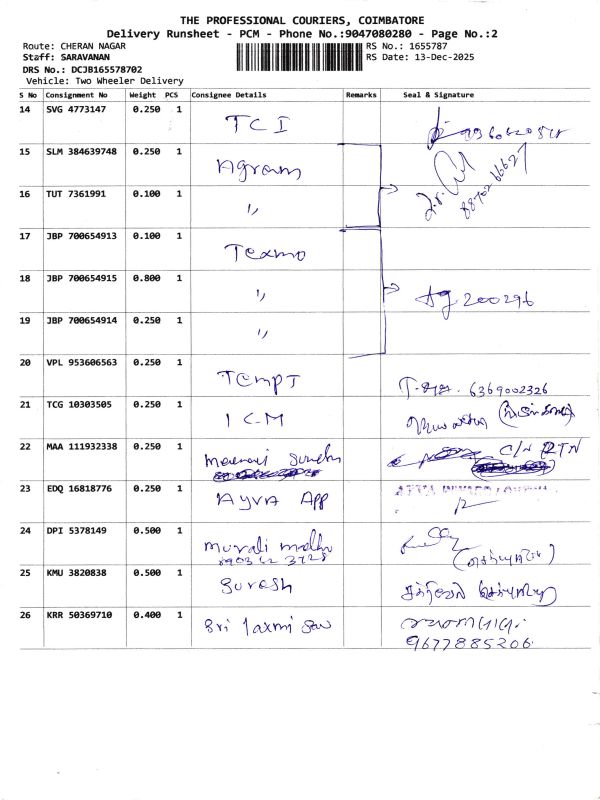 THE PROFESSIONAL COURIERS, COIMBATORE
Delivery Runsheet - PCM - Phone No.:9047080280 - Page No.:2
Route: CHERAN NAGAR
RS No.: 1655787
Staff: SARAVANAN
RS Date: 13-Dec-2025
DRS No.: DCJB165578702
Vehicle: Two Wheeler Delivery
S No Consignment No Weight PCS Consignee Details Remarks Seal & Signature
14 SVG 4773147 0.250 1 TCI
15 SLM 384639748 0.250 1 Agram
16 TUT 7361991 0.100 1 "
8870266627
17 JBP 700654913 0.100 1 Texmo
18 JBP 700654915 0.800 1 " 200296
19 JBP 700654914 0.250 1 "
20 VPL 953606563 0.250 1 TempT 6369002326
21 TCG 10303505 0.250 1 ICM
22 MAA 111932338 0.250 1 C/N RTN
23 EDQ 16818776 0.250 1 Ayra App
24 DPI 5378149 0.500 1 Murali
25 KMU 3820838 0.500 1 Suresh
26 KRR 50369710 0.400 1 Sri laxmi
9677885206